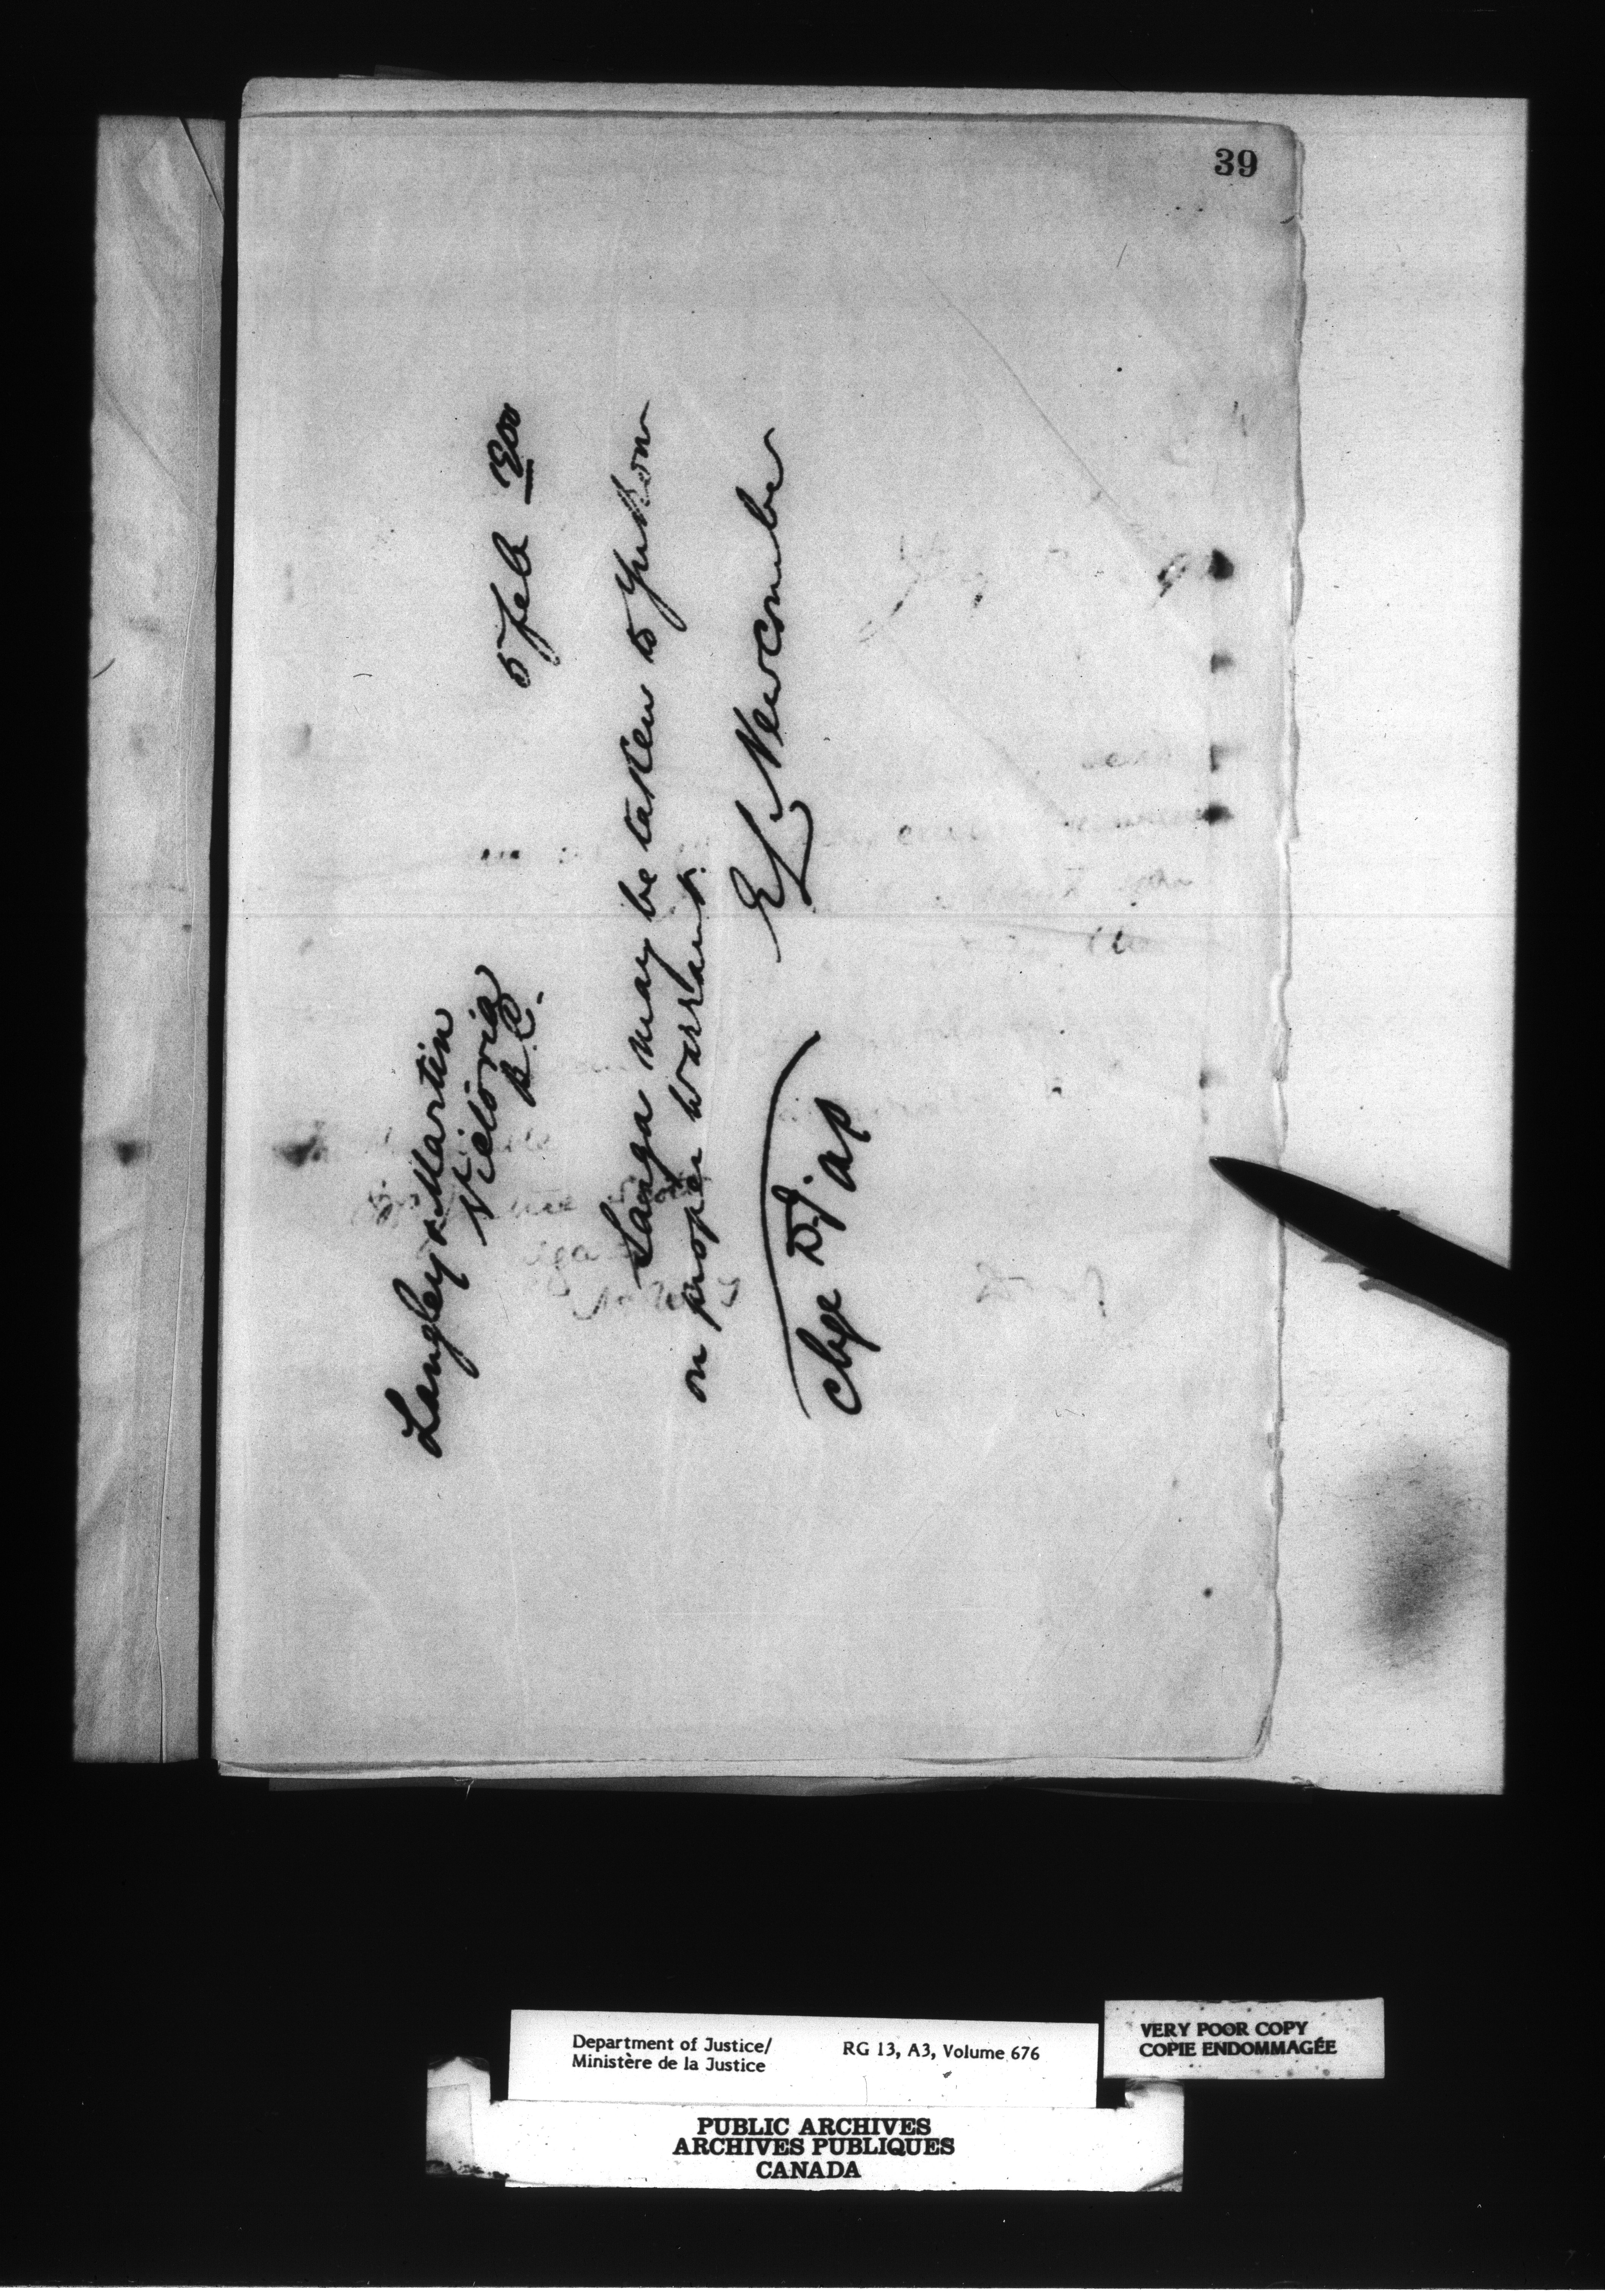 39
Langley & Martin
Victoria
B.C.
5 Feb 1900
Langa may be taken to Yukon
on proper warrant.
E L Newcombe
Chge D.J. a/p
Department of Justice/
Ministère de la Justice
RG 13, A3, Volume 676
VERY POOR COPY
COPIE ENDOMMAGÉE
PUBLIC ARCHIVES
ARCHIVES PUBLIQUES
CANADA